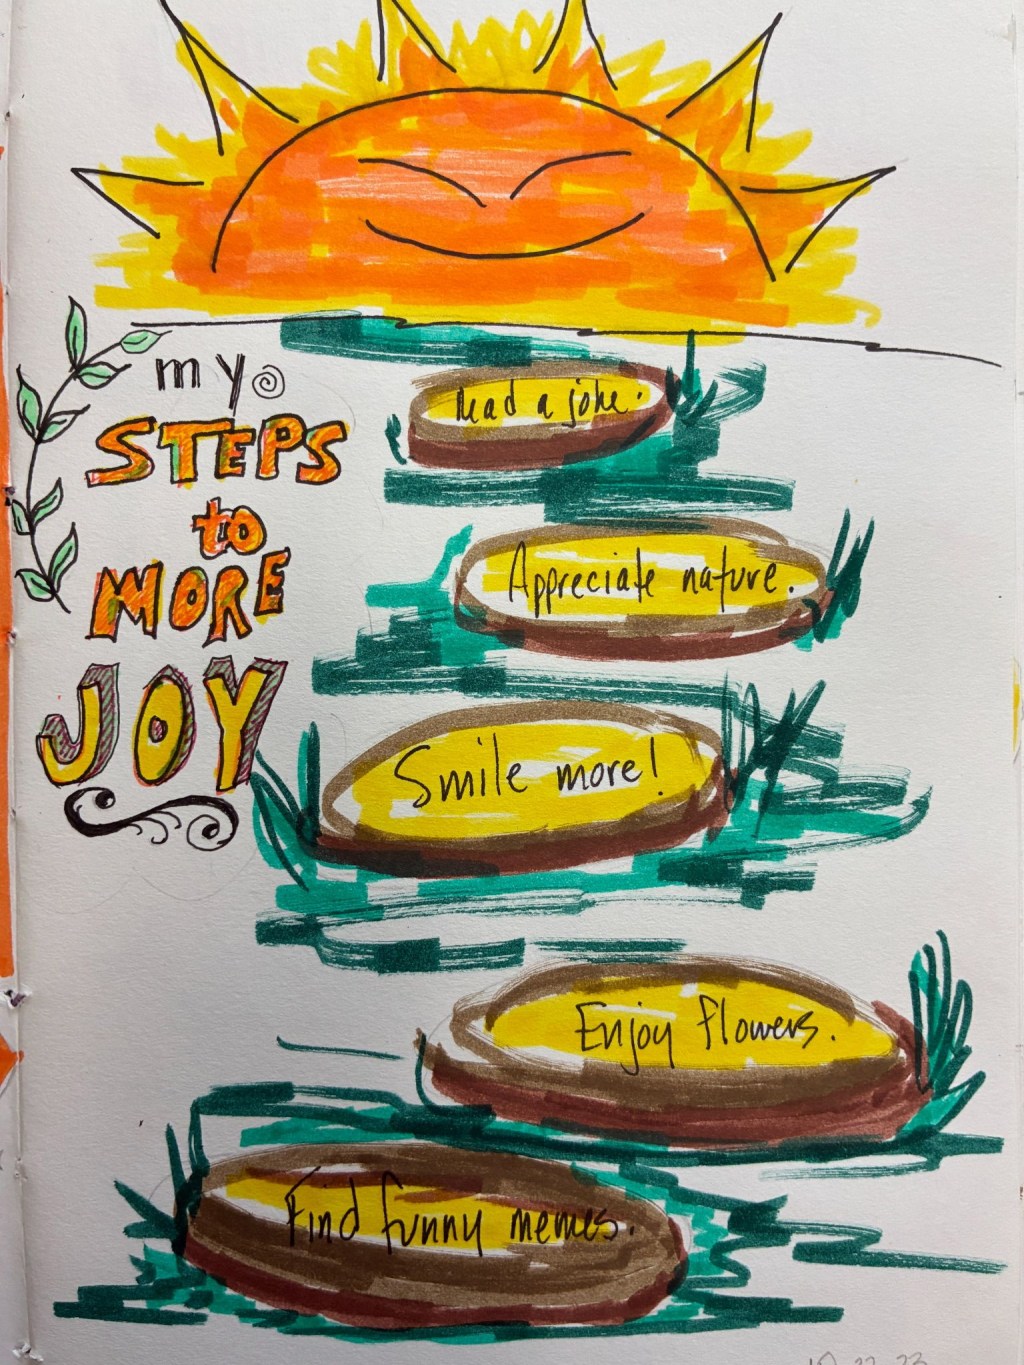 my
STEPS
to
MORE
JOY
Read a joke.
Appreciate nature.
Smile more!
Enjoy flowers.
Find funny memes.